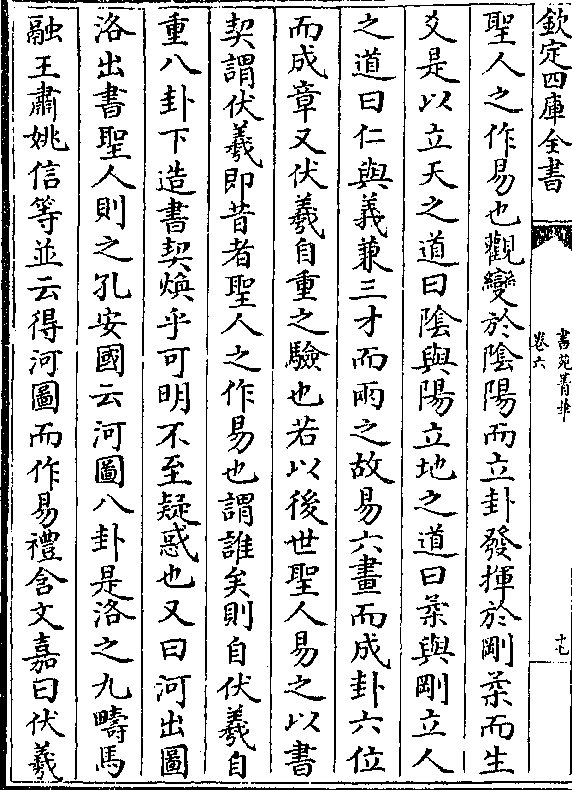 欽定四庫全書
書苑菁華
卷六
十七
聖人之作易也觀變於陰陽而立卦發揮於剛柔而生
爻是以立天之道曰陰與陽立地之道曰柔與剛立人
之道曰仁與義兼三才而兩之故易六畫而成卦六位
而成章又伏羲自重之驗也若以後世聖人易之以書
契謂伏羲即昔者聖人之作易也謂誰矣則自伏羲自
重八卦下造書契煥乎可明不至疑惑也又曰河出圖
洛出書聖人則之孔安國云河圖八卦是洛之九疇馬
融王肅姚信等並云得河圖而作易禮含文嘉曰伏羲